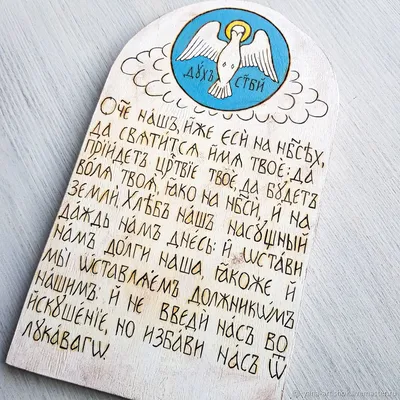 дꙋ́хъ ст҃ы́й
Ѻ҆́ч҃е нашъ, и҆́же є҆сѝ на нб҃сѣ́хъ,
да свѧти́тсѧ и҆́мѧ твоѐ: да
прїи́детъ црⷭ҇твїе твоѐ, да бꙋ́детъ
во́лѧ твоѧ̀, ꙗ҆́кѡ на нб҃сѝ, и҆ на
землѝ, хлѣ́бъ нашъ насꙋ́щный
да́ждь намъ дне́сь: и҆ ѡ҆ста́ви
намъ до́лги на́ша, ꙗ҆́коже, и҆
мы̀ ѡ҆ставлѧ́емъ должникѡ́мъ
на́шимъ: и҆ не введѝ на́съ во
и҆скꙋше́нїе, но и҆зба́ви на́съ ѿ
лꙋка́вагѡ.